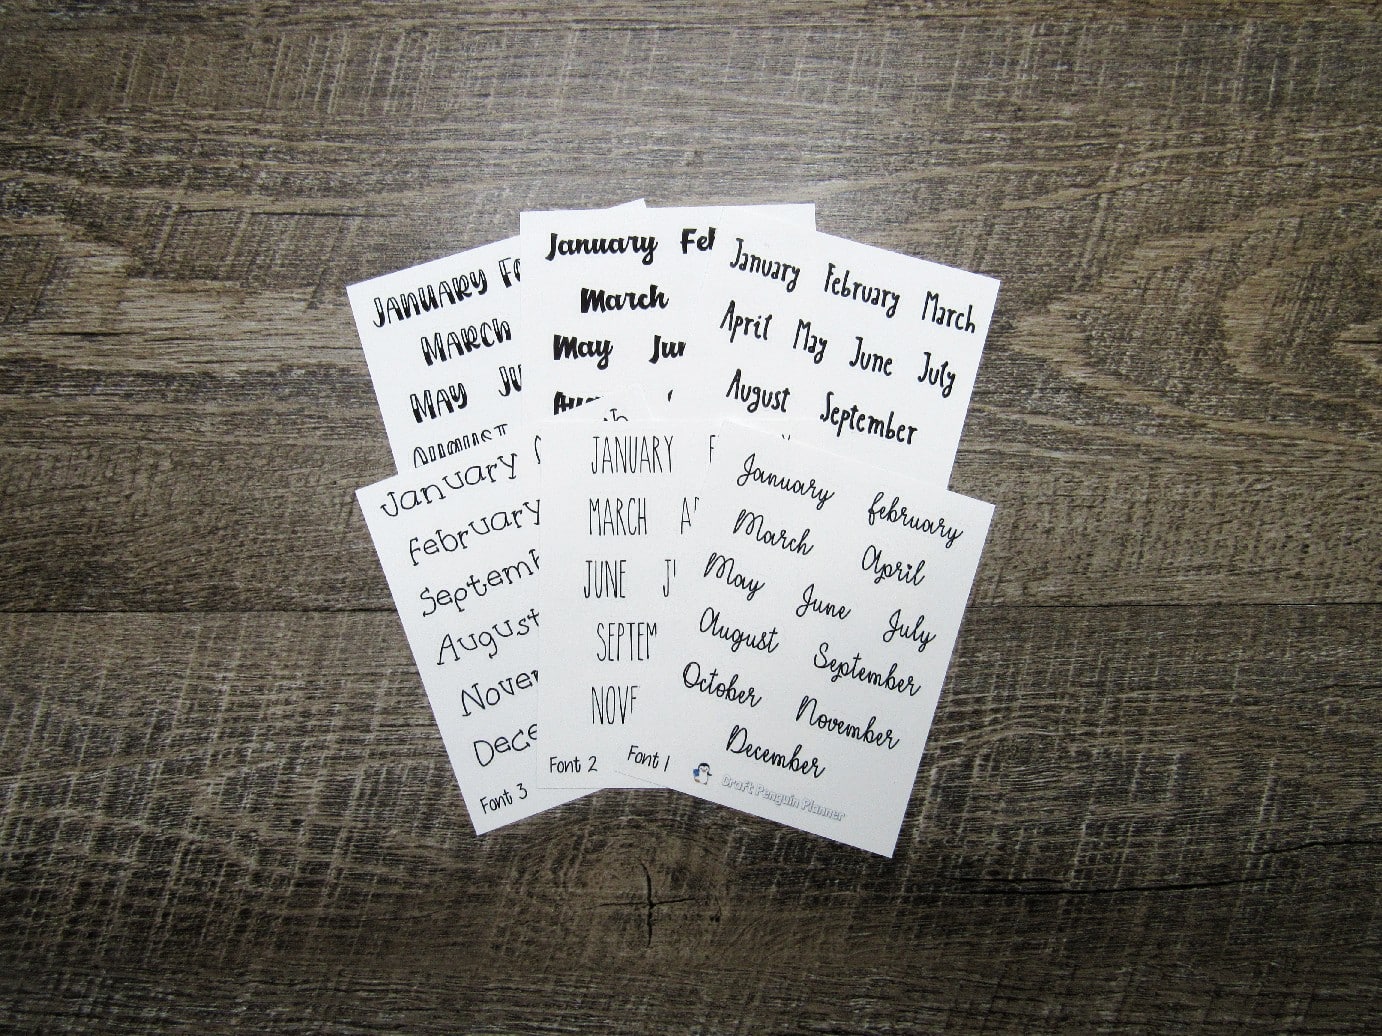 JANUARY
MARCH
MAY
AUGUST
January Feb
March
May Jun
January February March
April May June July
August September
January
February
Septemb
August
Novem
Dece
Font 3
JANUARY
MARCH
JUNE
SEPTEM
NOVE
Font 2
Font 1
January February
March April
May June July
August September
October November
December
Craft Penguin Planner